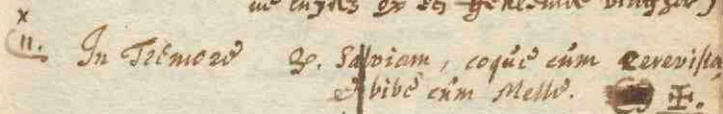 x
11. In Tremore ℞. Salviam, coque cum cerevisia
& bibe cum Melle. ✠.